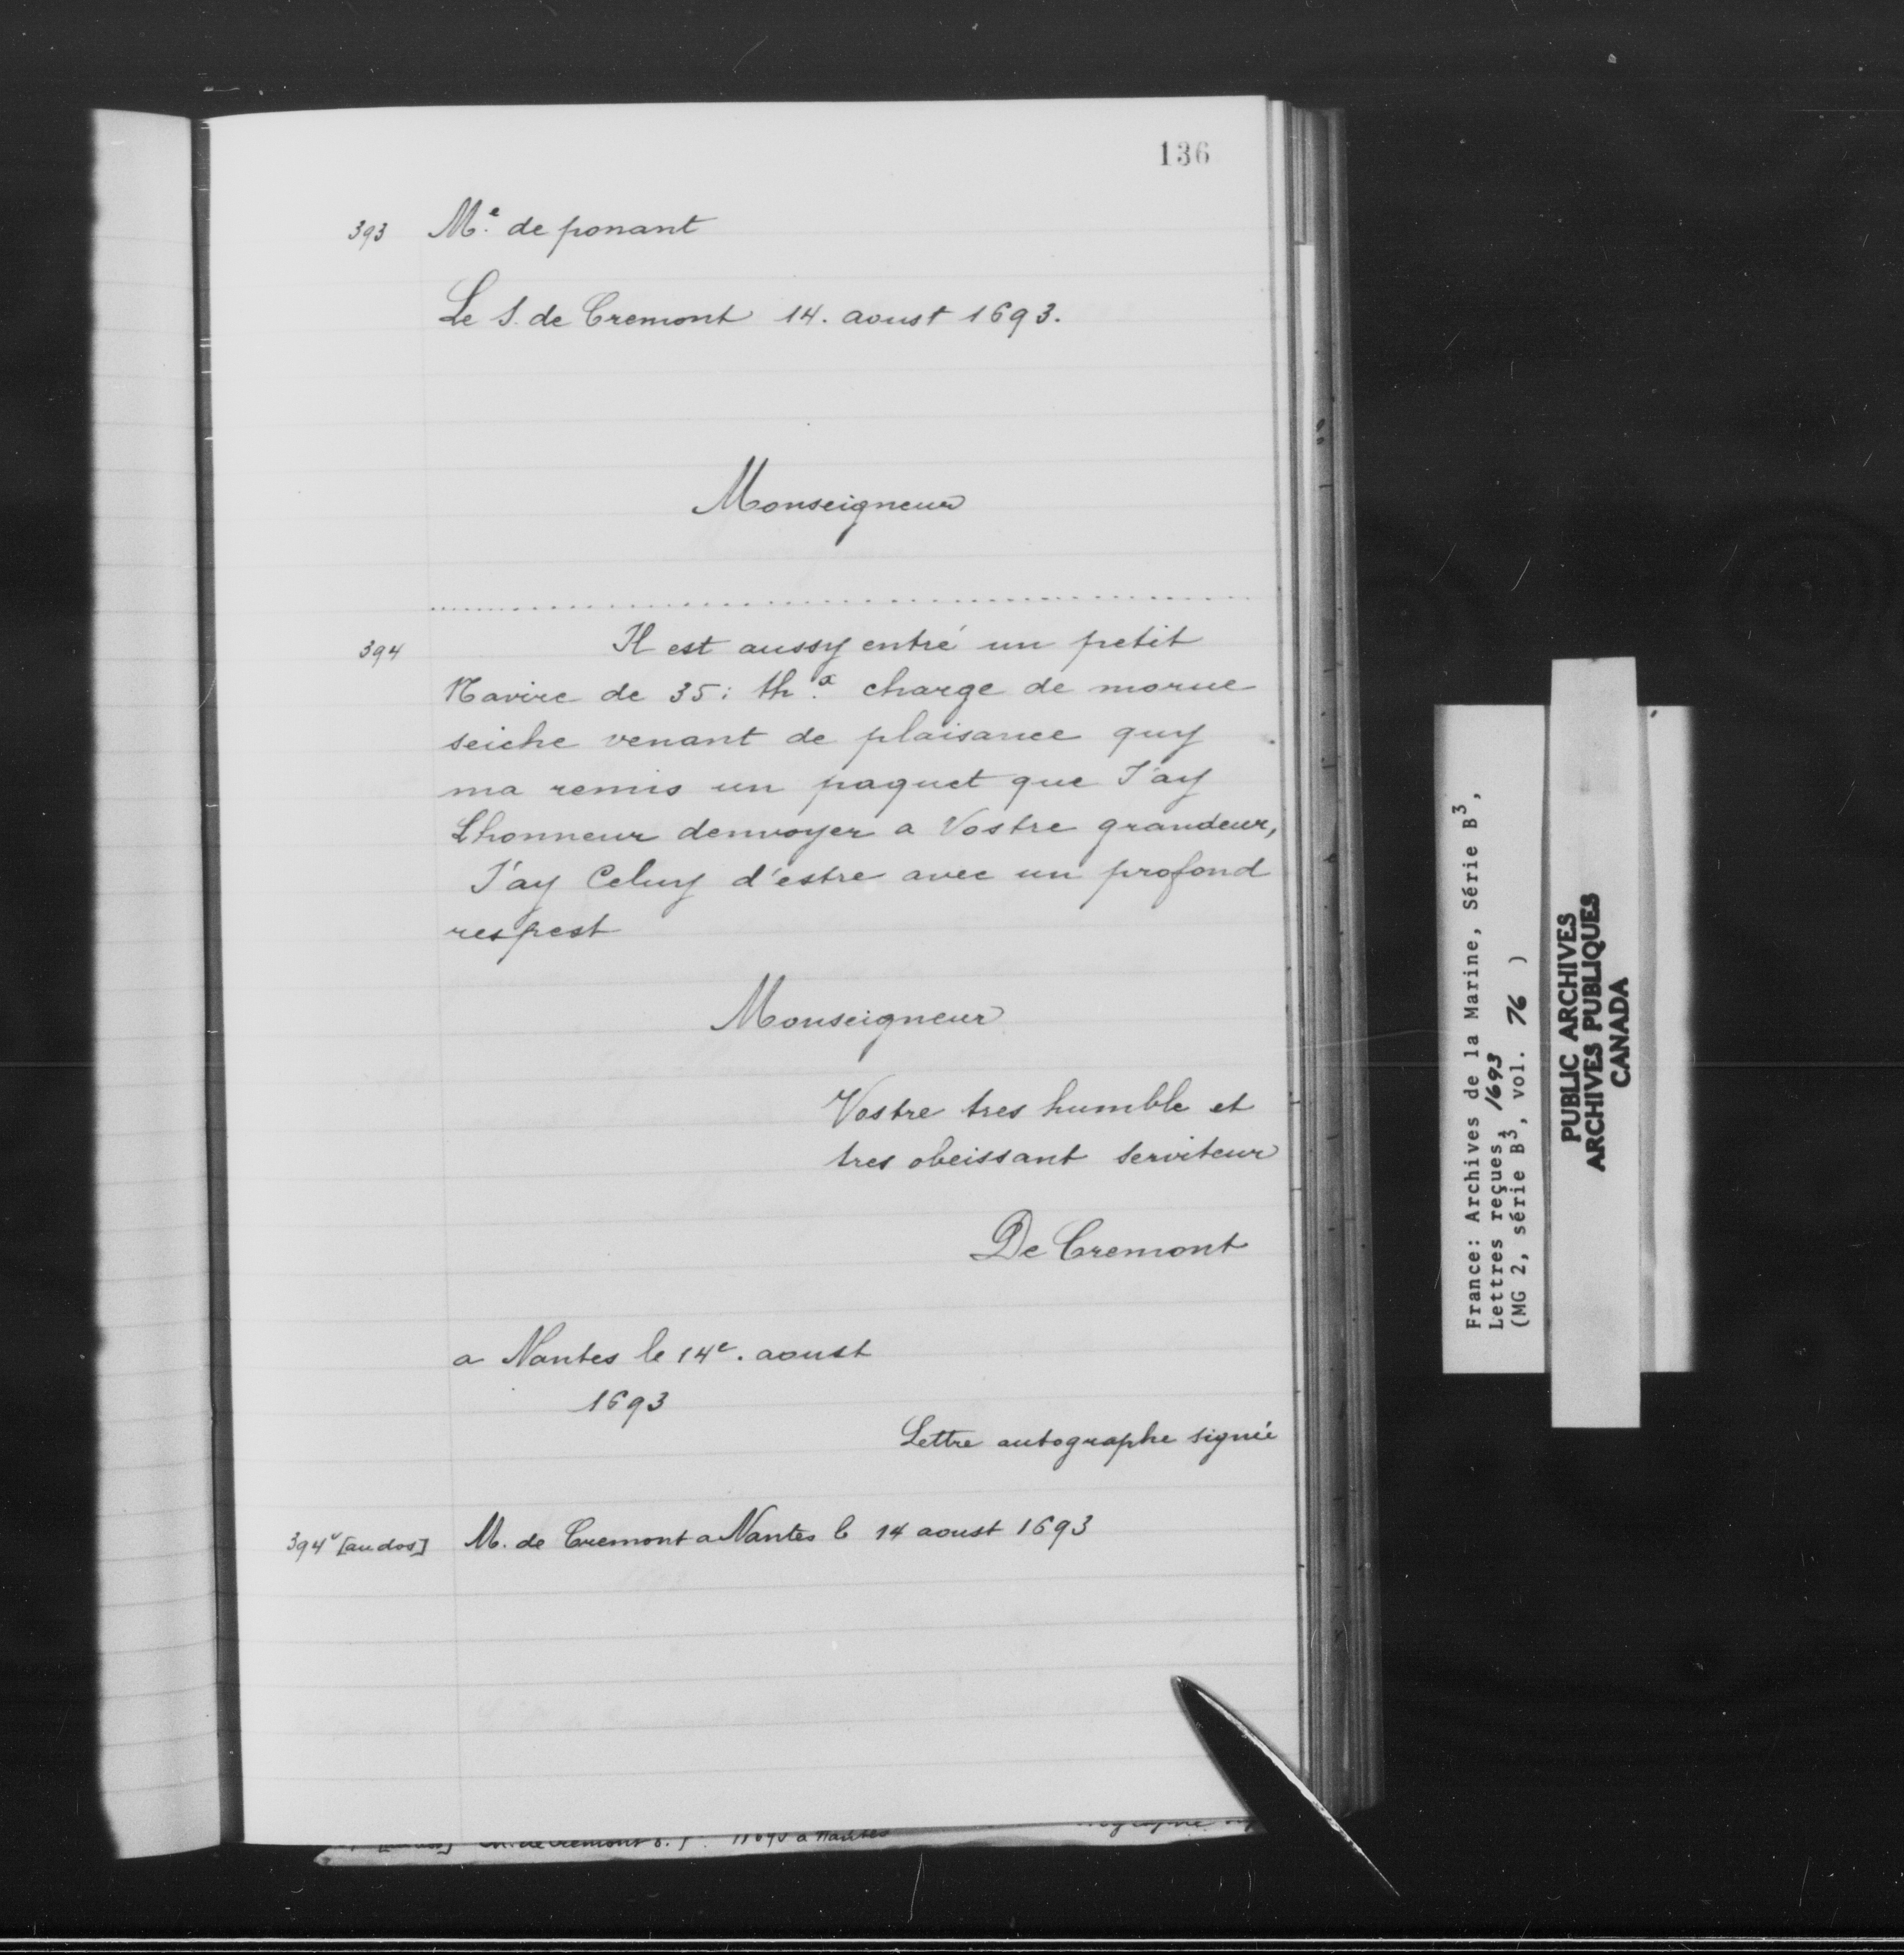 136
393 M.e de ponant
Le S. de Cremont 14. aoust 1693.
Monseigneur
394 Il est aussy entré un petit
Navire de 35: th.x charge de morue
seiche venant de plaisance quy
ma remis un paquet que J'ay
Lhonneur denvoyer a Vostre grandeur,
J'ay Celuy d'estre avec un profond
respest
Monseigneur
Vostre tres humble et
tres obeissant serviteur
De Cremont
a Nantes le 14e. aoust
1693
Lettre autographe signée
394v [au dos] M. de Cremont a Nantes le 14 aoust 1693
France: Archives de la Marine, Série B3,
Lettres reçues, 1693
(MG 2, série B3, vol. 76 )
PUBLIC ARCHIVES
ARCHIVES PUBLIQUES
CANADA